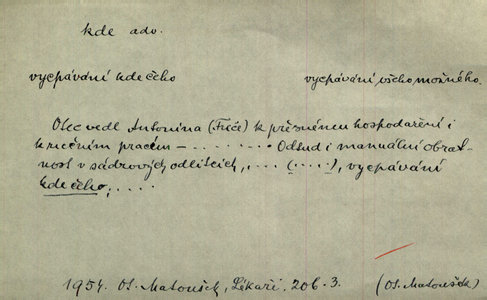 kde adv.
vycpávání kdečeho vycpávání všeho možného.
Otec vedl Antonína (Friče) k přesnému hospodaření i
k ručním pracím – . . . . . . . Odtud i manuální obrat-
nost v sádrových odlitcích, . . . . (. . . .), vycpávání
kdečeho, . . . .
1954. Ot. Matoušek, Lékaři, 206.3. (Ot. Matoušek)